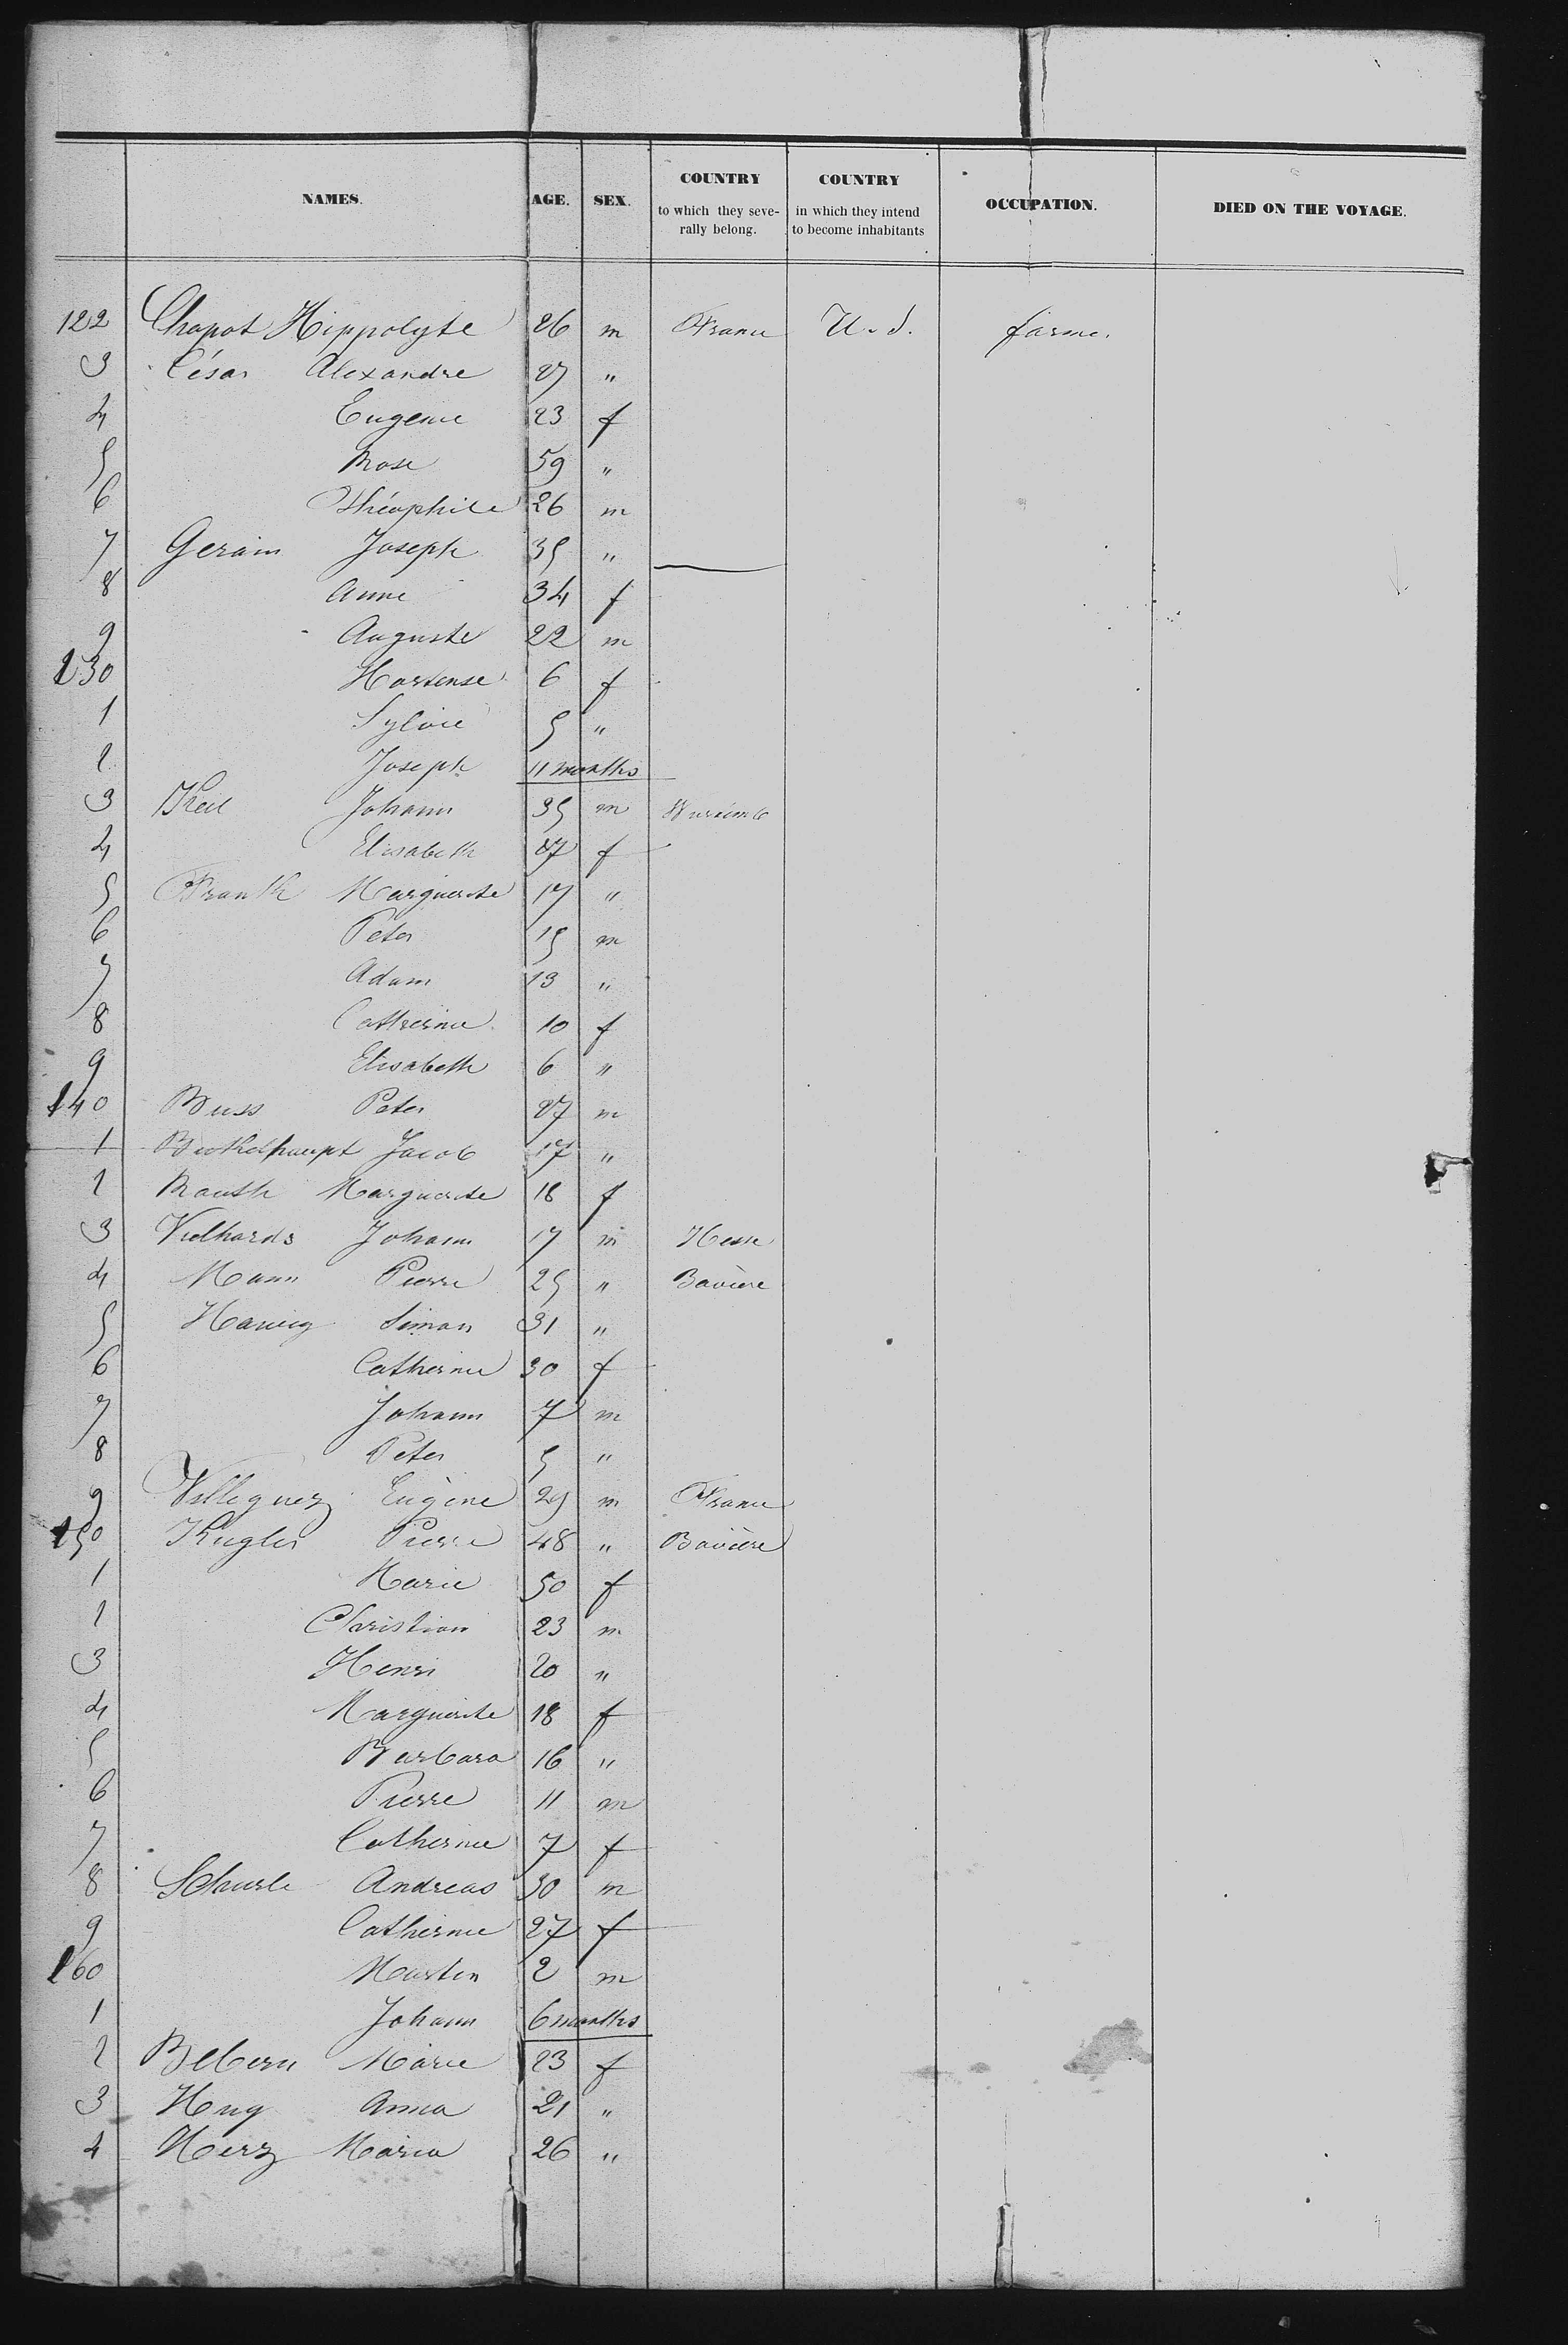 NAMES. AGE. SEX. COUNTRY to which they severally belong. COUNTRY in which they intend to become inhabitants OCCUPATION. DIED ON THE VOYAGE.
122 Chapot Hippolyte 26 m France U.S. farmer
3 César Alexandre 27 "
4 Eugenie 23 f
5 Rose 59 "
6 Théophile 26 m
7 Gerain Joseph 35 "
8 Anne 34 f
9 Auguste 22 m
130 Hortense 6 f
1 Sylvie 5 "
2 Joseph 11 months
3 Keil Johann 35 m Wurtemb
4 Elisabeth 27 f
5 Frankh Marguerite 17 "
6 Peter 15 m
7 Adam 13 "
8 Catherine 10 f
9 Elisabeth 6 "
140 Buss Peter 27 m
1 Jacob 17 "
2 Rauth Marguerite 18 f
3 Johann 17 m Hesse
4 Mann Pierre 25 "  Bavière
5 Simon 31 "
6 Catherine 30 f
7 Johann 7 m
8 Peter 5 "
9 Villeguez Eugène 29 m France
150 Kugler Pierre 48 " Bavière
1 Marie 50 f
2 Christian 23 m
3 Henri 20 "
4 Marguerite 18 f
5 Barbara 16 "
6 Pierre 11 m
7 Catherine 7 f
8 Andreas 30 m
9 Catherine 27 f
160 Martin 2 m
1 Johann 6 months
2 Marie 23 f
3 Hug Anna 21 "
4 Herz Maria 26 "